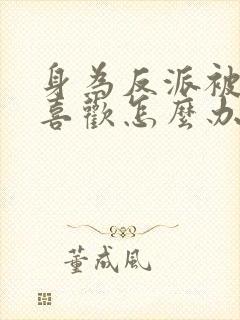 身為反派被
喜歡怎麼办
董成風